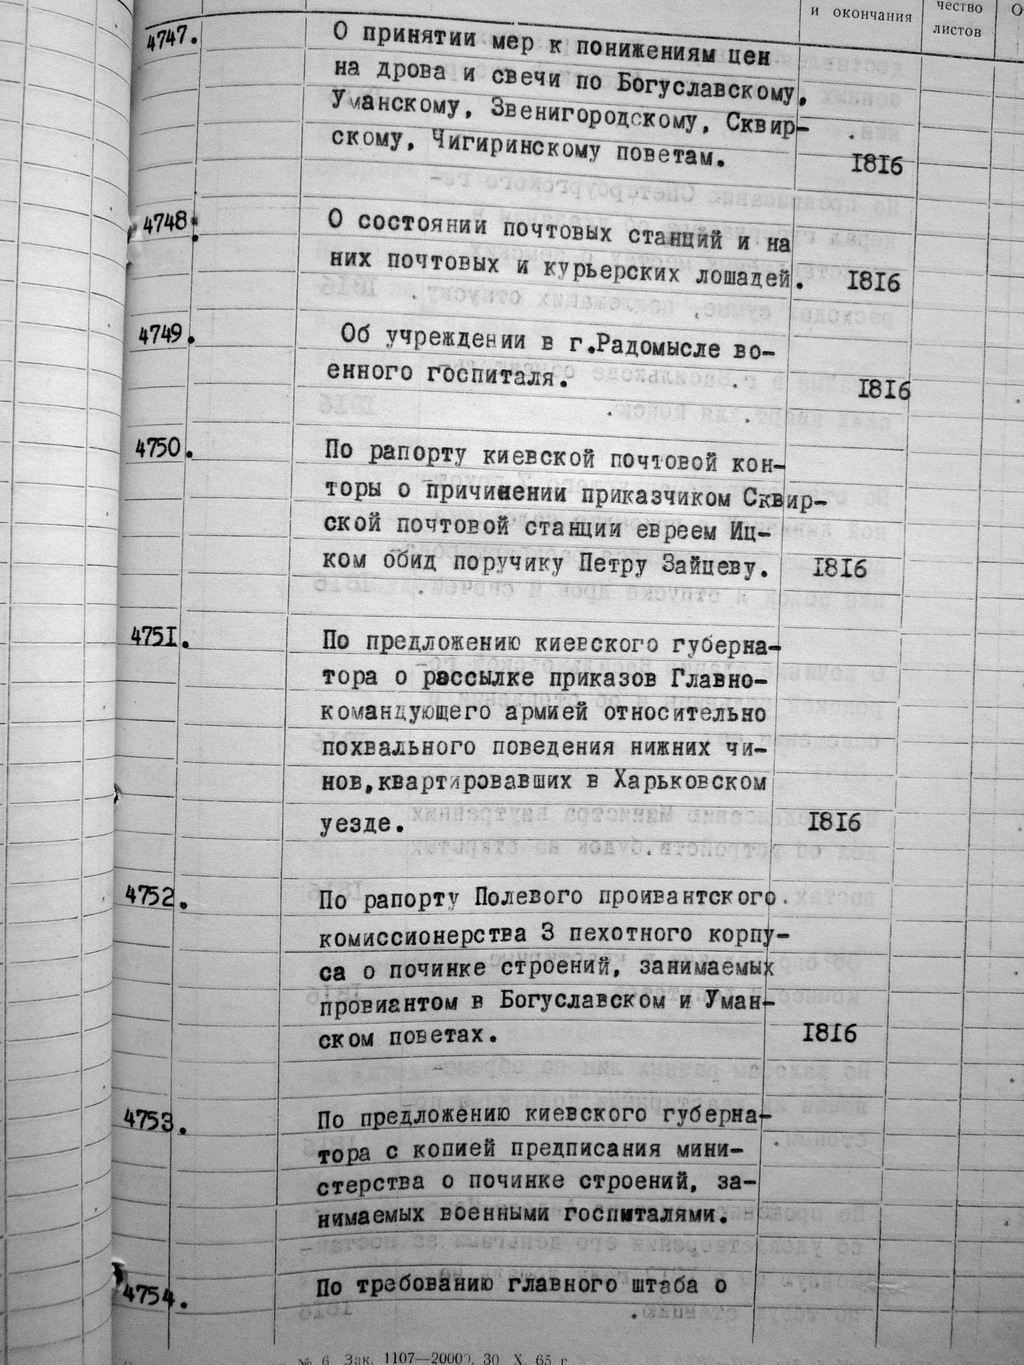 и окончания
чество
листов
О
4747.
О принятии мер к понижениям цен
на дрова и свечи по Богуславскому,
Уманскому, Звенигородскому, Сквир-
скому, Чигиринскому поветам.
1816
4748.
О состоянии почтовых станций и на
них почтовых и курьерских лошадей.
1816
4749.
Об учреждении в г.Радомысле во-
енного госпиталя.
1816
4750.
По рапорту киевской почтовой кон-
торы о причинении приказчиком Сквир-
ской почтовой станции евреем Иц-
ком обид поручику Петру Зайцеву.
1816
4751.
По предложению киевского губерна-
тора о рассылке приказов Главно-
командующего армией относительно
похвального поведения нижних чи-
нов,квартировавших в Харьковском
уезде.
1816
4752.
По рапорту Полевого проивантского
комиссионерства 3 пехотного корпу-
са о починке строений, занимаемых
провиантом в Богуславском и Уман-
ском поветах.
1816
4753.
По предложению киевского губерна-
тора с копией предписания мини-
стерства о починке строений, за-
нимаемых военными госпиталями.
4754.
По требованию главного штаба о
№ 6 Зак. 1107—20000. 30 X. 65 г